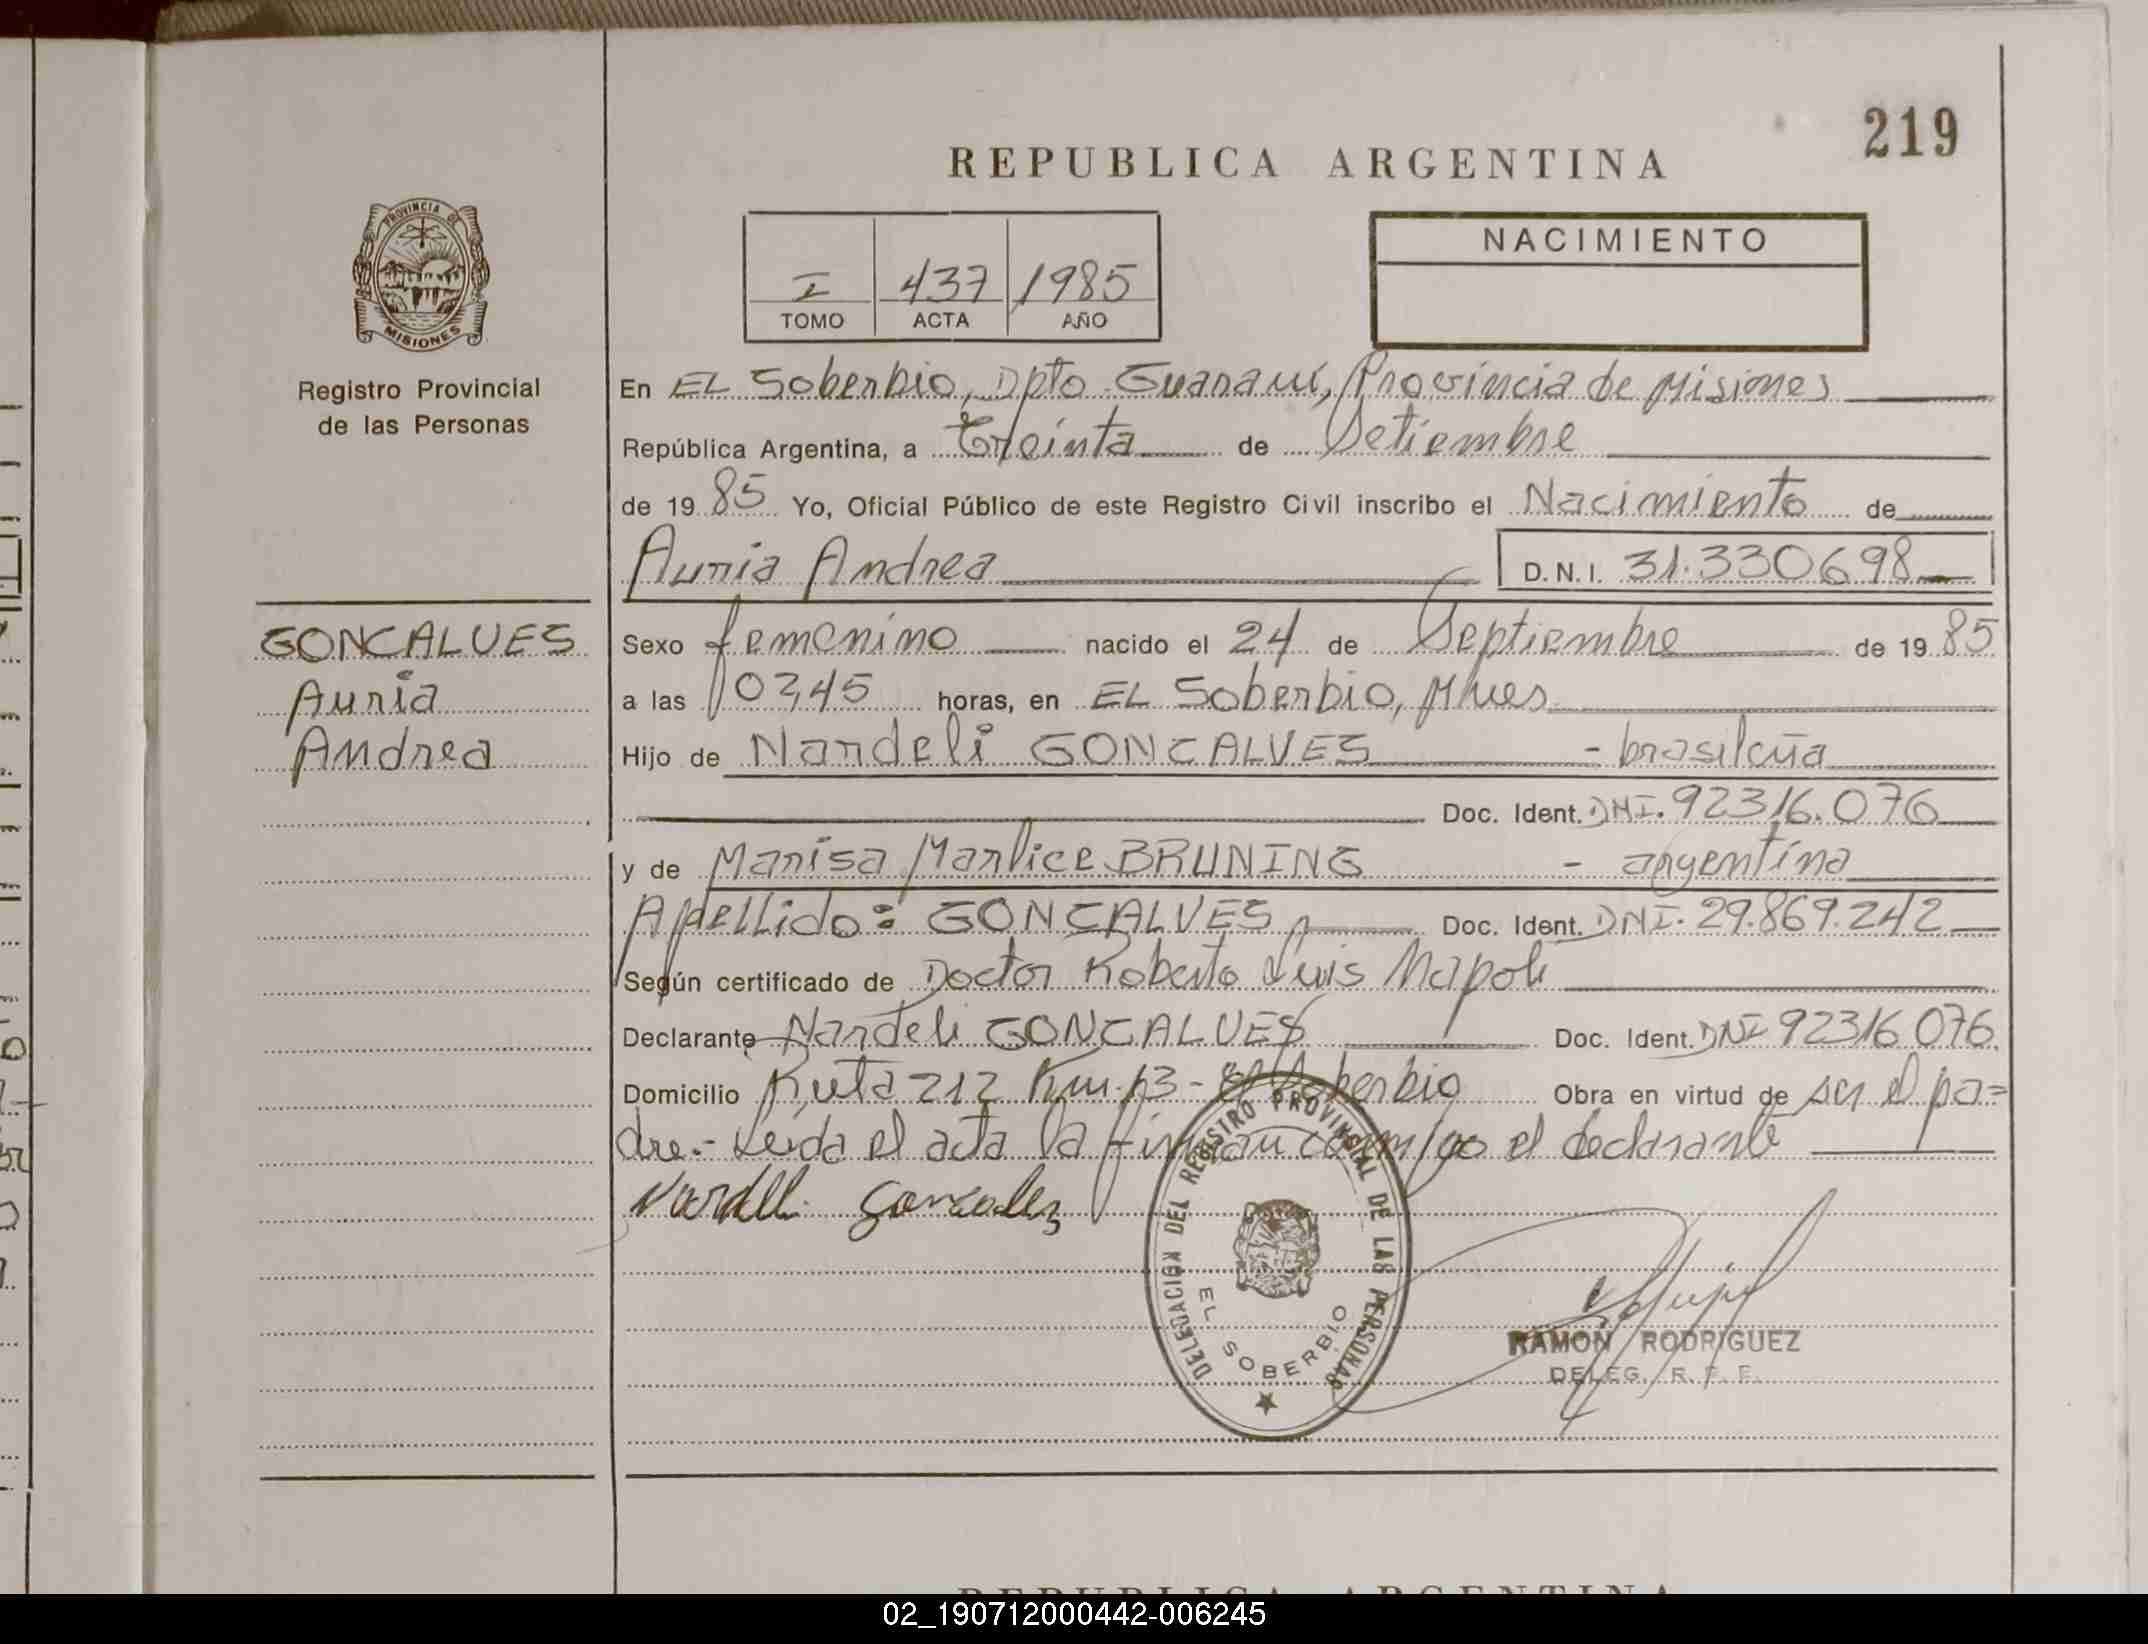 219
REPUBLICA ARGENTINA
PROVINCIA DE
MISIONES
Registro Provincial
de las Personas
I 437 1985
TOMO ACTA AÑO
NACIMIENTO
En EL Soberbio, Dpto Guaraní, Provincia de Misiones
República Argentina, a Treinta de Setiembre
de 1985 Yo, Oficial Público de este Registro Civil inscribo el Nacimiento de
Auria Andrea D.N.I. 31.330698
GONCALVES
Auria
Andrea
Sexo femenino nacido el 24 de Septiembre de 1985
a las horas, en EL Soberbio, Mnes
Hijo de Nardeli GONCALVES - brasileña
Doc. Ident. DNI. 92316.076
y de Marisa Marlice BRUNING - argentina
Apellido: GONCALVES Doc. Ident. DNI. 29.869.242
Según certificado de Doctor Roberto Luis Napoli
Declarante Nardeli GONCALVES Doc. Ident. DNI 92316076
Domicilio Ruta 212 Km.13 - El Soberbio Obra en virtud de ser el pa=
dre.- Leida el acta la firman conmigo el declarante
Nardeli Goncalez
DELEGACION DEL REGISTRO PROVINCIAL DE LAS PERSONAS
EL SOBERBIO
RAMON RODRIGUEZ
DELEG. R. P. P.
REPUBLICA ARGENTINA
02_190712000442-006245